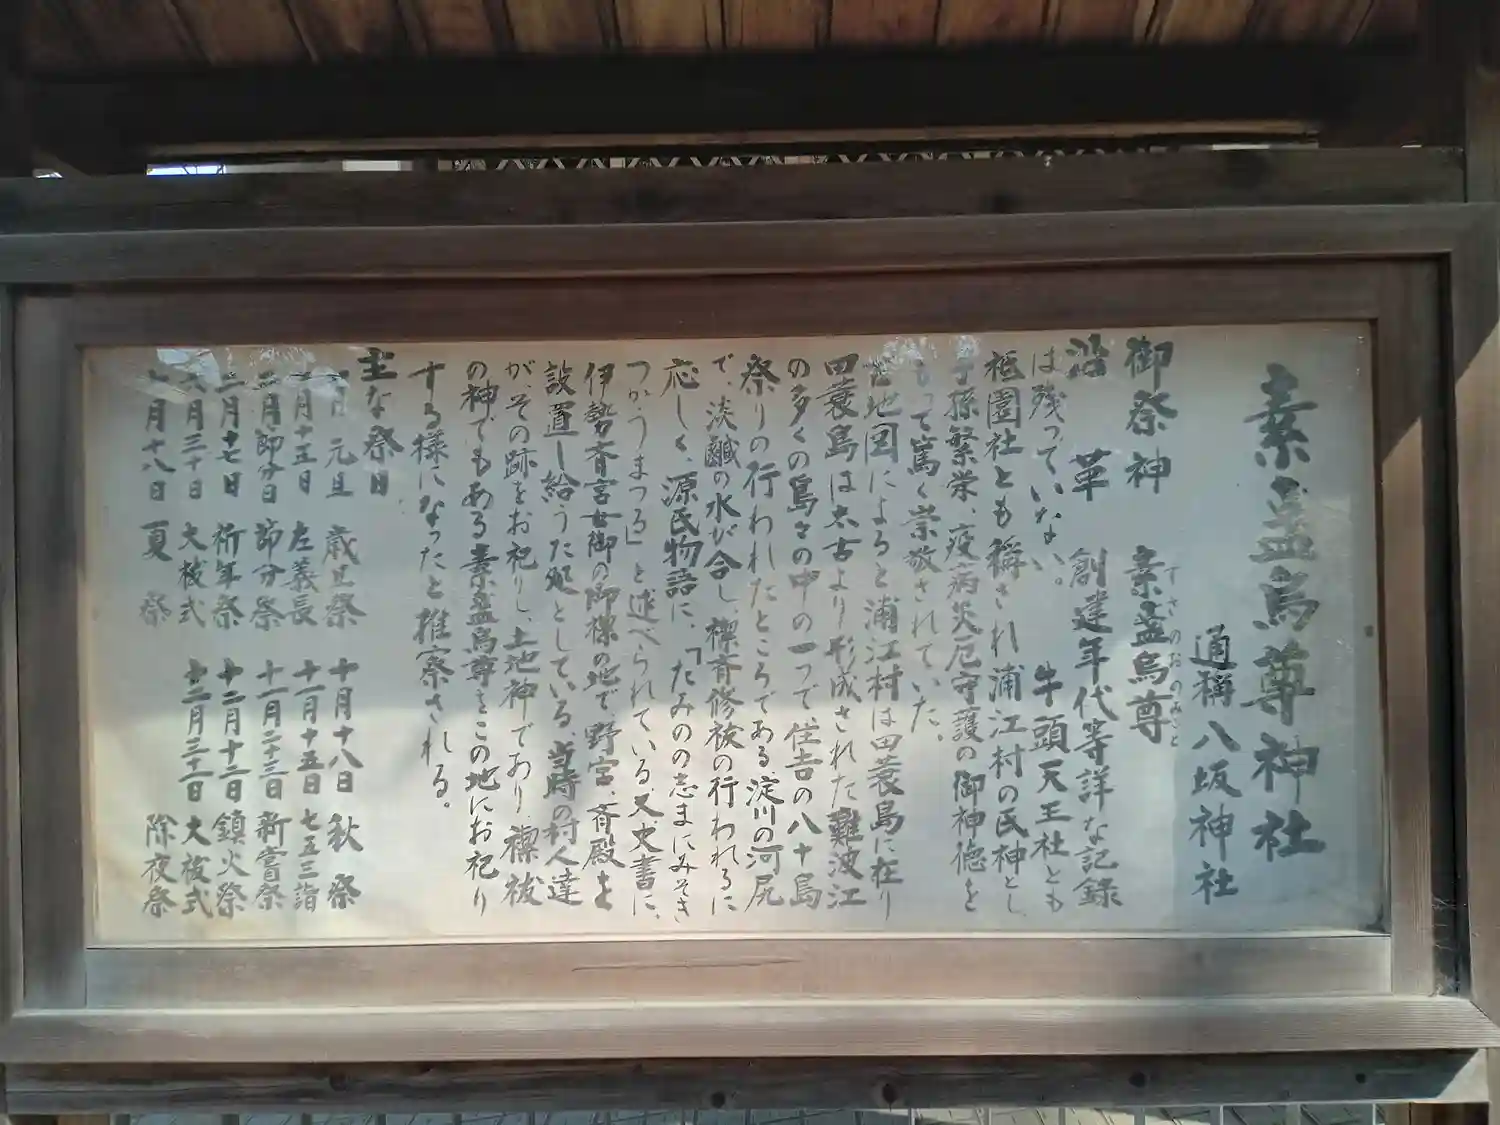 素盞烏尊神社
通稱八坂神社
御祭神 素盞烏尊
すさのおのみこと
沿革 創建年代等詳な記録
は残っていない。 牛頭天王社とも
祗園社とも稱され浦江村の民神とし
子孫繁栄、疫病災厄守護の御神徳を
もって篤く崇敬されていた。
古地図によると浦江村は田蓑島に在り
田蓑島は太古より形成された難波江
の多くの島々の中の一つで、住吉の八十島
祭りの行われたところである、淀川の河尻
で、淡鹹の水が合し、禊斉修祓の行われるに
応しく、源氏物語に、「たみのの志まにみそき
つかうまつる」と述べられている、又史書に、
伊勢斉宮女御の御禊の地で野宮、斉殿を
設置し給うた処としている、当時の村人達
が、その跡をお祀りし、土地神であり、禊祓
の神でもある素盞烏尊をこの地にお祀り
する様になったと推察される。
主な祭日
一月 元旦 歳旦祭 十月十八日 秋祭
一月十五日 左義長 十一月十五日 七五三詣
二月節分日 節分祭 十一月二十三日 新嘗祭
二月十七日 祈年祭 十二月十二日 鎮火祭
六月三十日 大祓式 十二月三十一日 大祓式
七月十八日 夏祭 除夜祭